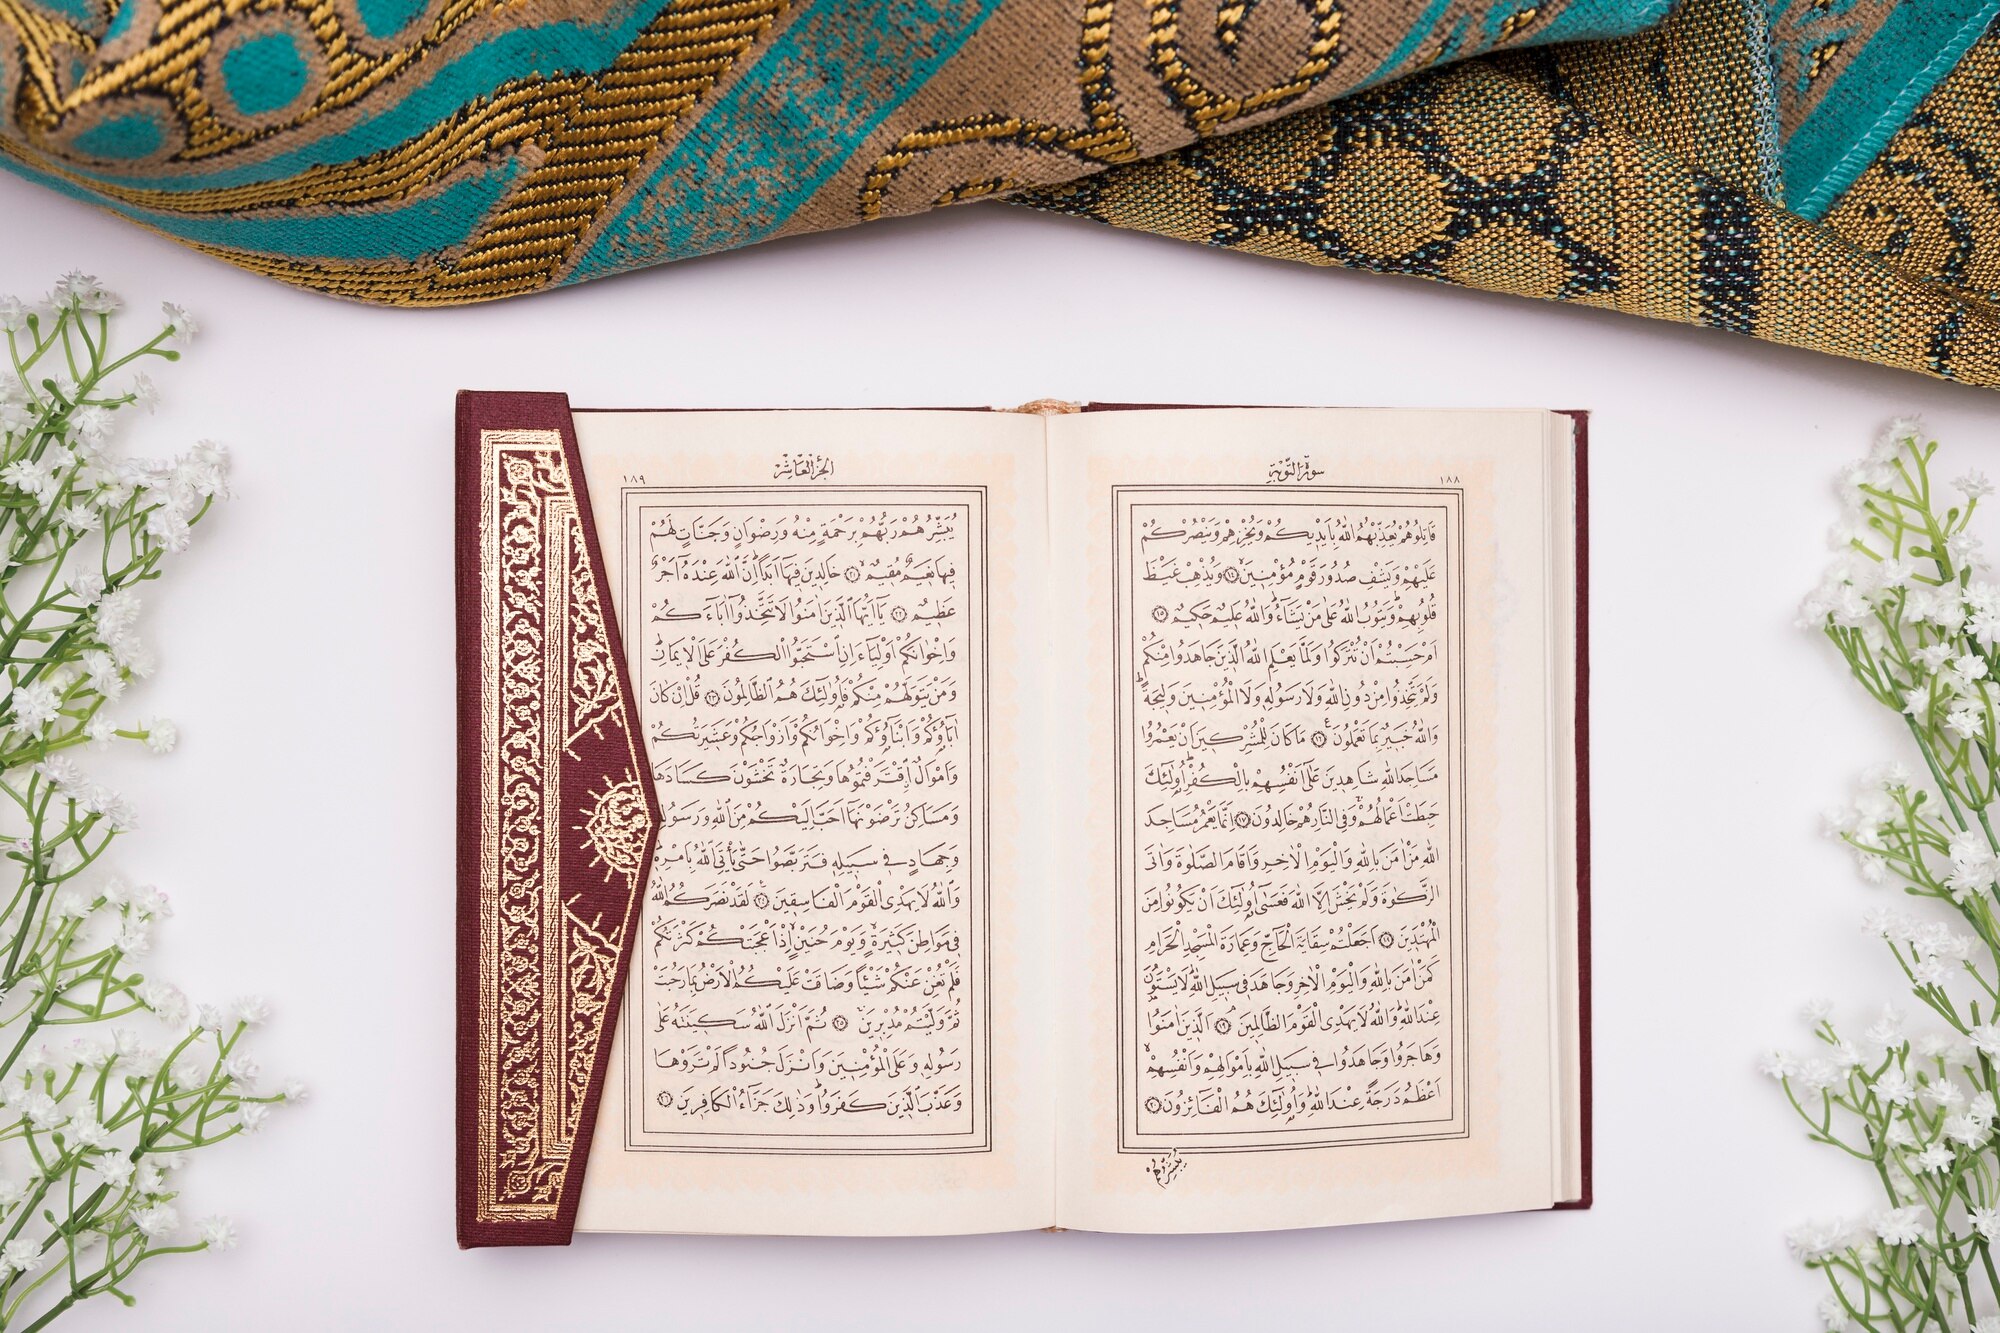 سورة التوبة
١٨٨
قَاتِلُوهُمْ يُعَذِّبْهُمُ اللّٰهُ بِاَيْدِيكُمْ وَيُخْزِهِمْ وَيَنْصُرْكُمْ
عَلَيْهِمْ وَيَشْفِ صُدُورَ قَوْمٍ مُؤْمِنِينَۙ ﴿١٤﴾ وَيُذْهِبْ غَيْظَ
قُلُوبِهِمْۜ وَيَتُوبُ اللّٰهُ عَلٰى مَنْ يَشَٓاءُۜ وَاللّٰهُ عَلِيمٌ حَكِيمٌ ﴿١٥﴾
اَمْ حَسِبْتُمْ اَنْ تُتْرَكُوا وَلَمَّا يَعْلَمِ اللّٰهُ الَّذِينَ جَاهَدُوا مِنْكُمْ
وَلَمْ يَتَّخِذُوا مِنْ دُونِ اللّٰهِ وَلَا رَسُولِهِ وَلَا الْمُؤْمِنِينَ وَلِيجَةًۜ
وَاللّٰهُ خَبِيرٌ بِمَا تَعْمَلُونَ۟ ﴿١٦﴾ مَا كَانَ لِلْمُشْرِكِينَ اَنْ يَعْمُرُوا
مَسَاجِدَ اللّٰهِ شَاهِدِينَ عَلٰٓى اَنْفُسِهِمْ بِالْكُفْرِۜ اُو۬لٰٓئِكَ
حَبِطَتْ اَعْمَالُهُمْۚ وَفِي النَّارِ هُمْ خَالِدُونَ ﴿١٧﴾ اِنَّمَا يَعْمُرُ مَسَاجِدَ
اللّٰهِ مَنْ اٰمَنَ بِاللّٰهِ وَالْيَوْمِ الْاٰخِرِ وَاَقَامَ الصَّلٰوةَ وَاٰتَى
الزَّكٰوةَ وَلَمْ يَخْشَ اِلَّا اللّٰهَ فَعَسٰٓى اُو۬لٰٓئِكَ اَنْ يَكُونُوا مِنَ
الْمُهْتَدِينَ ﴿١٨﴾ اَجَعَلْتُمْ سِقَايَةَ الْحَٓاجِّ وَعِمَارَةَ الْمَسْجِدِ الْحَرَامِ
كَمَنْ اٰمَنَ بِاللّٰهِ وَالْيَوْمِ الْاٰخِرِ وَجَاهَدَ فِي سَبِيلِ اللّٰهِۜ لَا يَسْتَوُ۫نَ
عِنْدَ اللّٰهِۜ وَاللّٰهُ لَا يَهْدِي الْقَوْمَ الظَّالِمِينَۢ ﴿١٩﴾ اَلَّذِينَ اٰمَنُوا
وَهَاجَرُوا وَجَاهَدُوا فِي سَبِيلِ اللّٰهِ بِاَمْوَالِهِمْ وَاَنْفُسِهِمْۙ
اَعْظَمُ دَرَجَةً عِنْدَ اللّٰهِۜ وَاُو۬لٰٓئِكَ هُمُ الْفَٓائِزُونَ ﴿٢٠﴾
يُبَشِّرُهُمْ
الجزء العاشر
١٨٩
يُبَشِّرُهُمْ رَبُّهُمْ بِرَحْمَةٍ مِنْهُ وَرِضْوَانٍ وَجَنَّاتٍ لَهُمْ
فِيهَا نَعِيمٌ مُقِيمٌۙ ﴿٢١﴾ خَالِدِينَ فِيهَٓا اَبَدًاۜ اِنَّ اللّٰهَ عِنْدَهُٓ اَجْرٌ
عَظِيمٌ ﴿٢٢﴾ يَٓا اَيُّهَا الَّذِينَ اٰمَنُوا لَا تَتَّخِذُٓوا اٰبَٓاءَكُمْ
وَاِخْوَانَكُمْ اَوْلِيَٓاءَ اِنِ اسْتَحَبُّوا الْكُفْرَ عَلَى الْاِيمَانِۜ
وَمَنْ يَتَوَلَّهُمْ مِنْكُمْ فَاُو۬لٰٓئِكَ هُمُ الظَّالِمُونَ ﴿٢٣﴾ قُلْ اِنْ كَانَ
اٰبَٓاؤُ۬كُمْ وَاَبْنَٓاؤُ۬كُمْ وَاِخْوَانُكُمْ وَاَزْوَاجُكُمْ وَعَشِيرَتُكُمْ
وَاَمْوَالٌ اقْتَرَفْتُمُوهَا وَتِجَارَةٌ تَخْشَوْنَ كَسَادَهَا
وَمَسَاكِنُ تَرْضَوْنَهَٓا اَحَبَّ اِلَيْكُمْ مِنَ اللّٰهِ وَرَسُولِهِ
وَجِهَادٍ فِي سَبِيلِهِ فَتَرَبَّصُوا حَتّٰى يَأْتِيَ اللّٰهُ بِاَمْرِهِۜ
وَاللّٰهُ لَا يَهْدِي الْقَوْمَ الْفَاسِقِينَ۟ ﴿٢٤﴾ لَقَدْ نَصَرَكُمُ اللّٰهُ
فِي مَوَاطِنَ كَثِيرَةٍۙ وَيَوْمَ حُنَيْنٍۙ اِذْ اَعْجَبَتْكُمْ كَثْرَتُكُمْ
فَلَمْ تُغْنِ عَنْكُمْ شَيْـًٔا وَضَاقَتْ عَلَيْكُمُ الْاَرْضُ بِمَا رَحُبَتْ
ثُمَّ وَلَّيْتُمْ مُدْبِرِينَۚ ﴿٢٥﴾ ثُمَّ اَنْزَلَ اللّٰهُ سَكِينَتَهُ عَلٰى
رَسُولِهِ وَعَلَى الْمُؤْمِنِينَ وَاَنْزَلَ جُنُودًا لَمْ تَرَوْهَا
وَعَذَّبَ الَّذِينَ كَفَرُواۜ وَذٰلِكَ جَزَٓاءُ الْكَافِرِينَ ﴿٢٦﴾